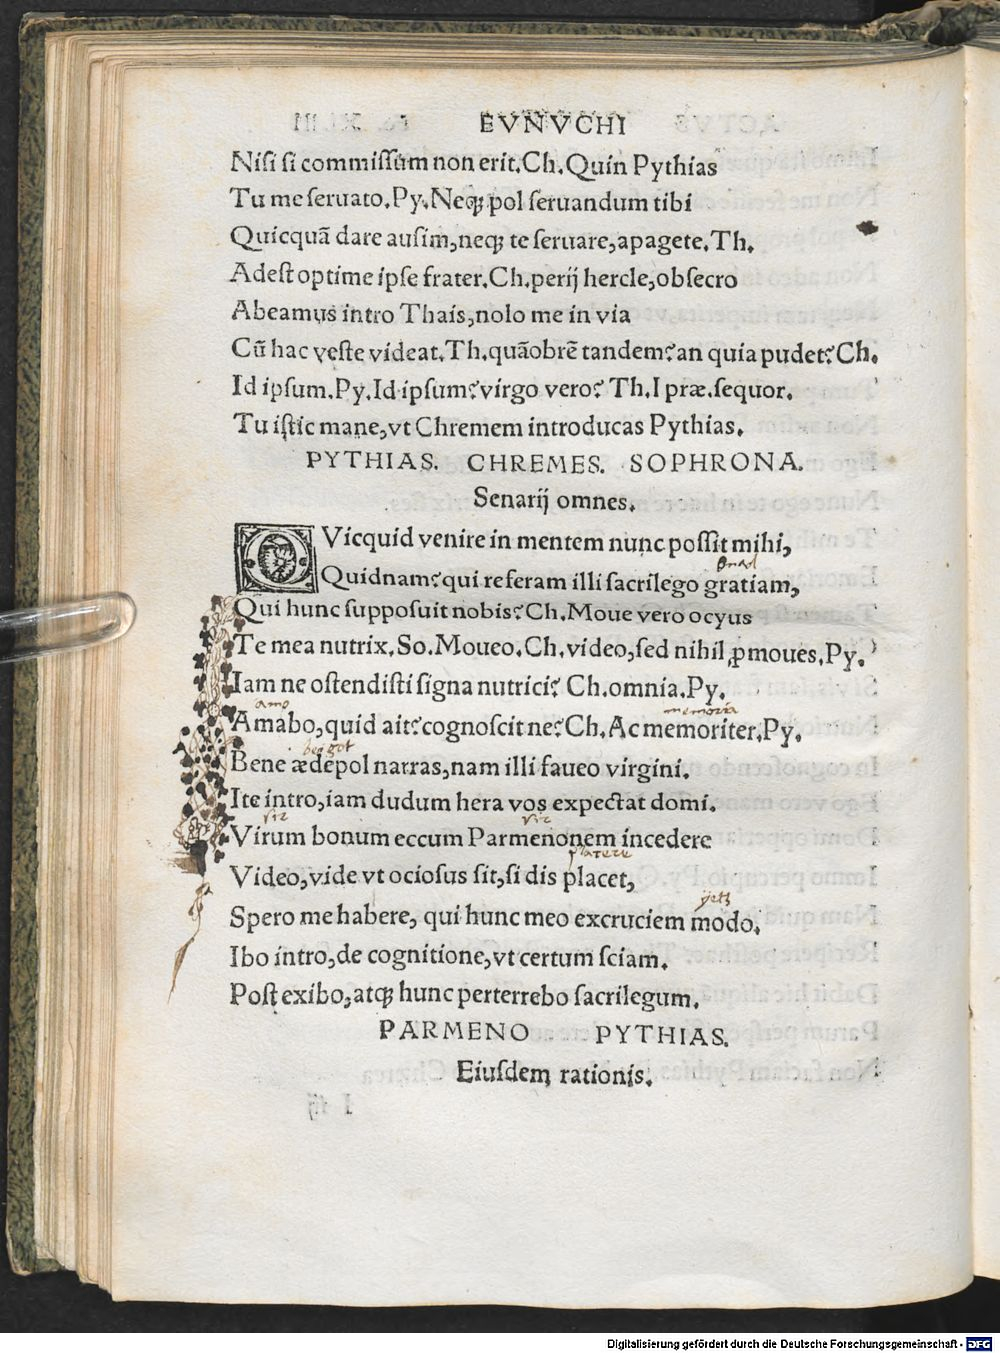 EVNVCHI
Nisi si commissum non erit. Ch. Quin Pythias
Tu me seruato. Py. Neqꝫ pol seruandum tibi
Quicquā dare ausim, neqꝫ te seruare, apagete. Th.
Adest optime ipse frater. Ch. perij hercle, obsecro
Abeamus intro Thais, nolo me in via
Cū hac veste videat. Th. quāobrē tandem? an quia pudet? Ch.
Id ipsum. Py. Id ipsum? virgo vero? Th. I præ. sequor.
Tu istic mane, vt Chremem introducas Pythias.
PYTHIAS. CHREMES. SOPHRONA.
Senarij omnes.
QVicquid venire in mentem nunc possit mihi,
Quidnam? qui referam illi sacrilego gratiam,
Qui hunc supposuit nobis? Ch. Moue vero ocyus
Te mea nutrix. So. Moueo. Ch. video, sed nihil ꝓmoues. Py.
Iam ne ostendisti signa nutrici? Ch. omnia. Py.
amo memoria
Amabo, quid ait? cognoscit ne? Ch. Ac memoriter. Py.
Bene ædepol narras, nam illi faueo virgini.
Ite intro, iam dudum hera vos expectat domi.
vir
Virum bonum eccum Parmenonem incedere
Video, vide vt ociosus sit, si dis placet,
Spero me habere, qui hunc meo excruciem modo.
Ibo intro, de cognitione, vt certum sciam.
Post exibo, atqꝫ hunc perterrebo sacrilegum.
PARMENO PYTHIAS.
Eiusdem rationis.
Digitalisierung gefördert durch die Deutsche Forschungsgemeinschaft - DFG